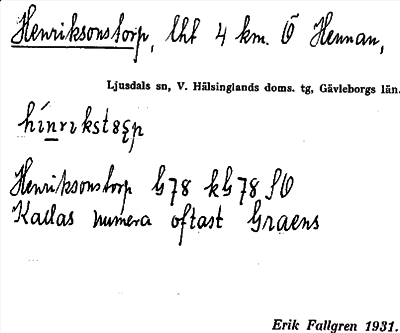 Henriksonstorp, lht 4 km. Ö Hennan,
Ljusdals sn, V. Hälsinglands doms. tg, Gävleborgs län.
Henriksonstorp G78 kG78 SO
Kallas numera oftast Graens
Erik Fallgren 1931.